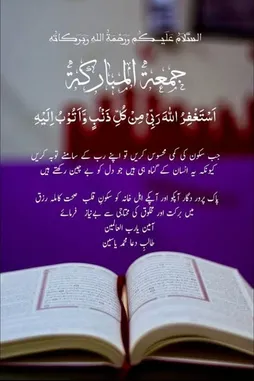 السَّلَامُ عَلَيْكُم وَرَحْمَةُ اللهِ وَبَرَكَاتُه
جمعة المباركة
اَسْتَغْفِرُ اللهَ رَبِّىْ مِنْ كُلِّ ذَنْبٍ وَّاَتُوْبُ اِلَيْهِ
جب سکون کی کمی محسوس کریں تو اپنے رب کے سامنے توبہ کریں
کیونکہ یہ انسان کے گناہ ہی ہیں جو دل کو بے چین رکھتے ہیں
پاک پرور دگار آپکو اور آپکے اہل خانہ کو سکون قلب صحت کاملہ رزق
میں برکت اور مخلوق کی محتاجی سے بے نیاز فرمائے
آمین یارب العالمین
طالب دعا محمد یاسین